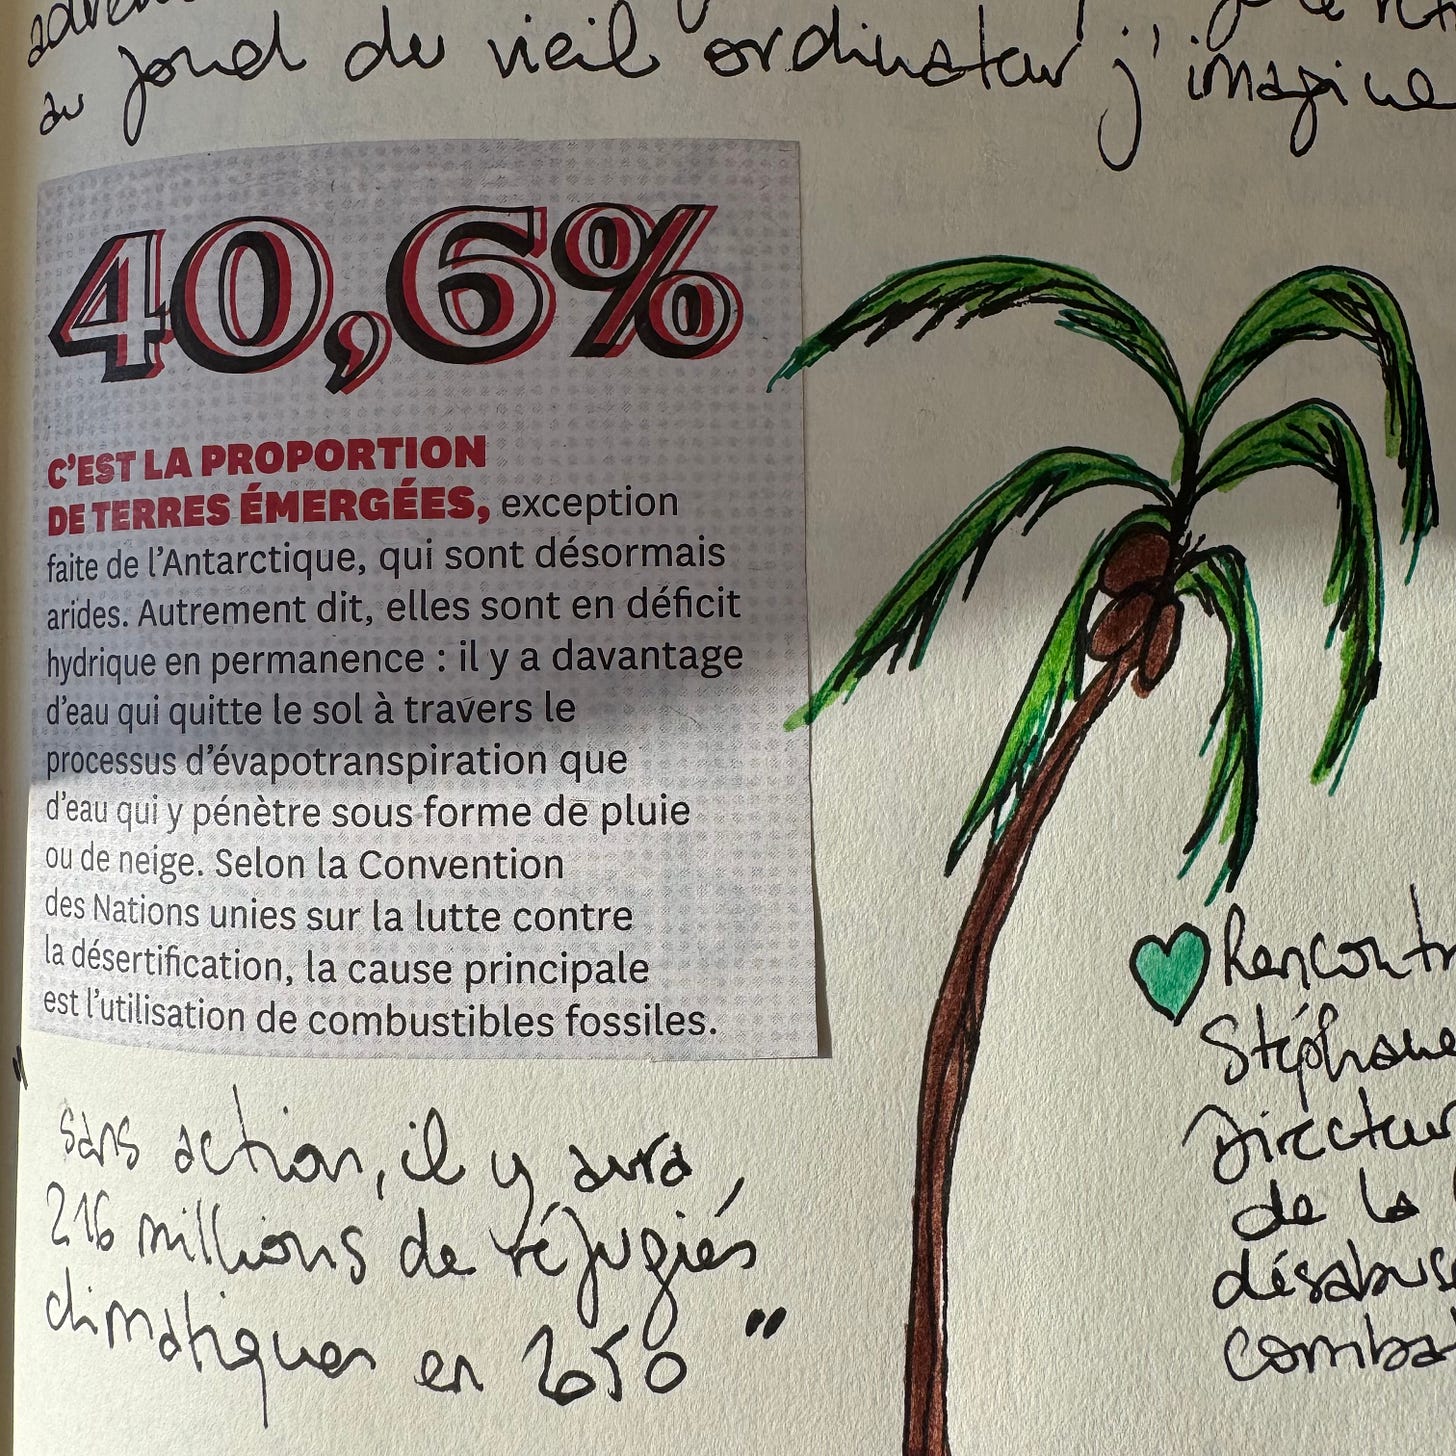 au fond du vieil ordinateur j'imagine
40,6%
C'EST LA PROPORTION
DE TERRES ÉMERGÉES, exception
faite de l'Antarctique, qui sont désormais
arides. Autrement dit, elles sont en déficit
hydrique en permanence : il y a davantage
d'eau qui quitte le sol à travers le
processus d'évapotranspiration que
d'eau qui y pénètre sous forme de pluie
ou de neige. Selon la Convention
des Nations unies sur la lutte contre
la désertification, la cause principale
est l'utilisation de combustibles fossiles.
"
sans action, il y aura
216 millions de réfugiés
climatiques en 2050 "
Rencontr
Stéphane
Directeur
de la
désabus
comba